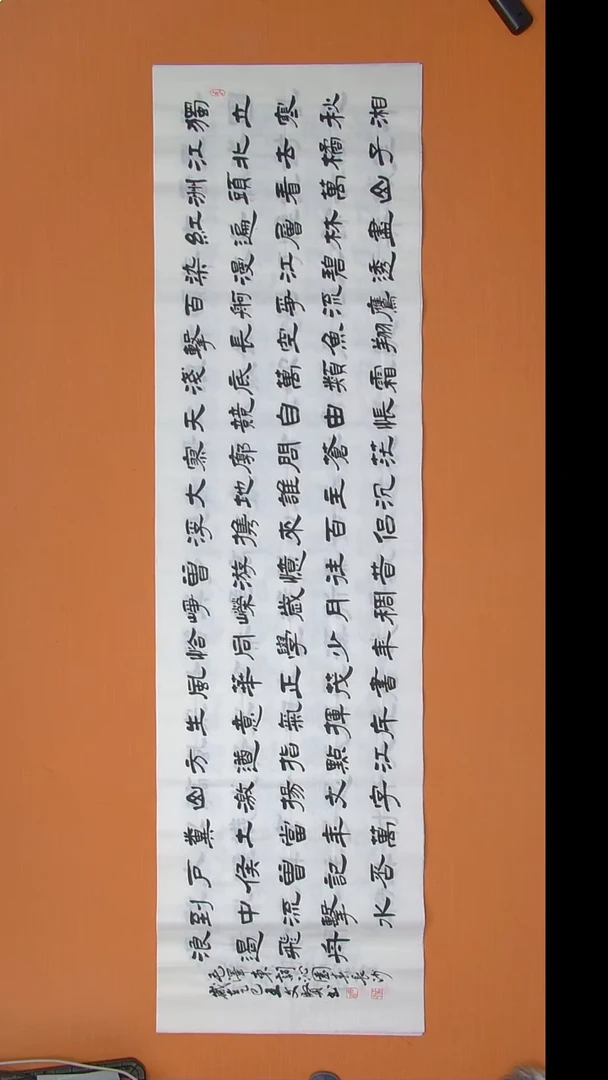 獨立寒秋湘
江北去橘子
洲頭看萬山
紅遍層林盡
染漫江碧透
百舸爭流鷹
擊長空魚翔
淺底萬類霜
天競自由悵
寥廓問蒼茫
大地誰主沉
浮攜來百侶
曾游憶往昔
崢嶸歲月稠
恰同學少年
風華正茂書
生意氣揮斥
方遒指點江
山激揚文字
糞土當年萬
戶侯曾記否
到中流擊水
浪遏飛舟
毛澤東詞沁園春長沙
歲在乙巳王文賢書